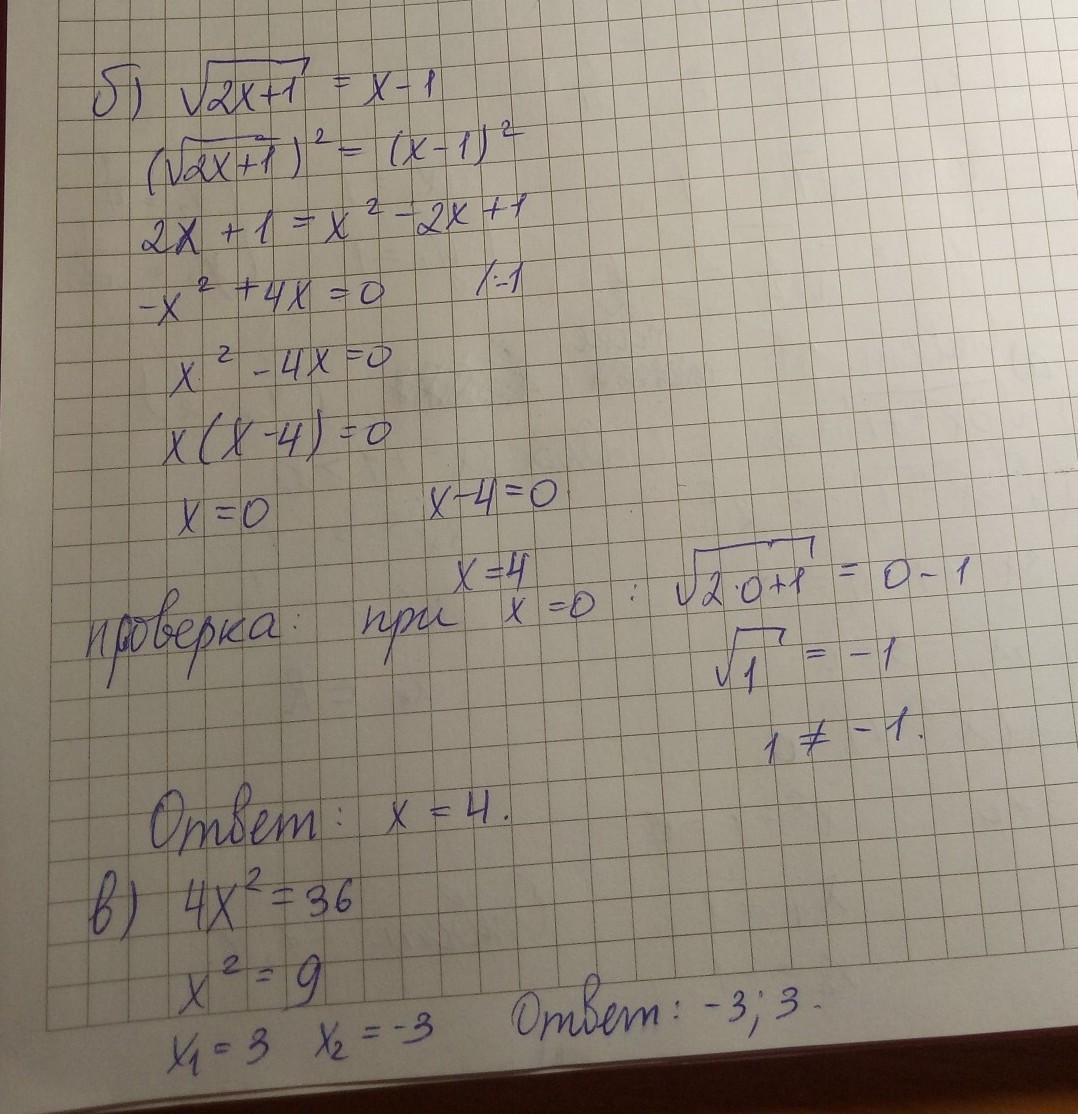 б) √(2x+1) = x-1
(√(2x+1))² = (x-1)²
2x + 1 = x² - 2x + 1
-x² + 4x = 0 /:-1
x² - 4x = 0
x(x-4) = 0
x = 0 x-4 = 0
x = 4
проверка: при x = 0 : √(2·0+1) = 0 - 1
√1 = -1
1 ≠ -1.
Ответ: x = 4.
в) 4x² = 36
x² = 9
x₁ = 3 x₂ = -3 Ответ: -3; 3.